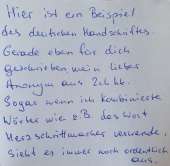 Hier ist ein Beispiel
des deutschen Handschriftes.
Gerade eben für dich
geschrieben mein lieber
Anonym aus 2ch.hk.
Sogar wenn ich kombinierte
Wörter wie z.B. das Wort
Herzschrittmacher verwende,
sieht es immer noch ordentlich
aus.